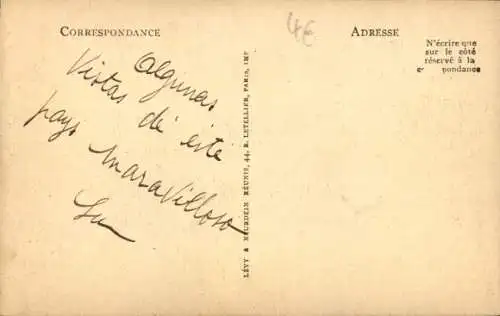 CORRESPONDANCE
ADRESSE
4€
N'écrire que
sur le côté
réservé à la
pondance
Algunas
Vistas de este
pays maravilloso
LÉVY & NEURDEIN RÉUNIS, 44, R. LETELLIER, PARIS, IMP